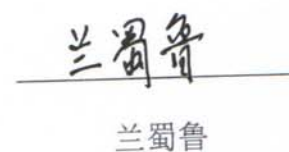 兰蜀鲁
兰蜀鲁